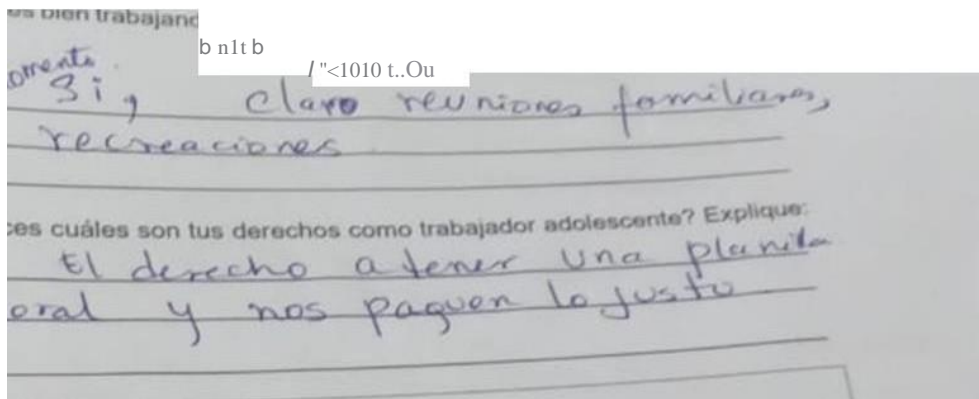 os bien trabajand
b n1t b
/ "<1010 t..Ou
omento.
Si, claro reuniones familiares,
recreaciones
ces cuáles son tus derechos como trabajador adolescente? Explique:
El derecho a tener una planilla
oral y nos paguen lo justo